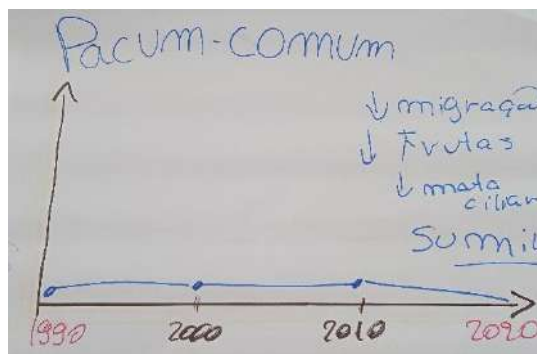 Pacum-comum
↓ migração
↓ Frutas
↓ mata
ciliar
1990 2000 2010 2020